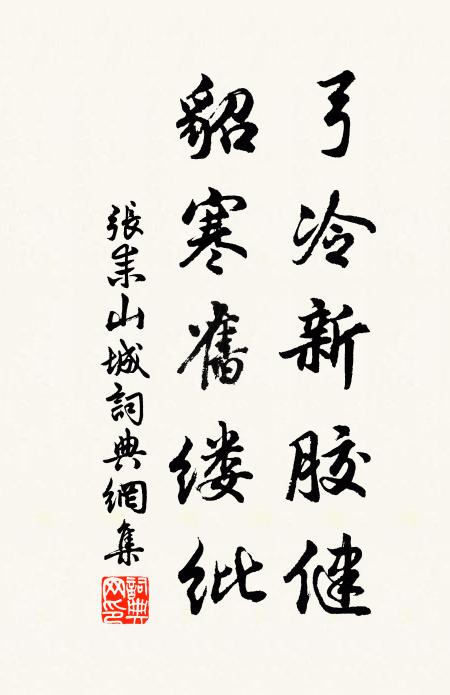 弓冷新胶健
貂寒舊缕纰
張耒山城詞典網集
詞典網印